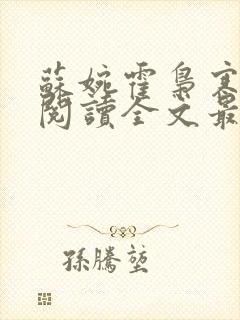 蘇婉霍梟寒
閱讀全文最
孫騰堃